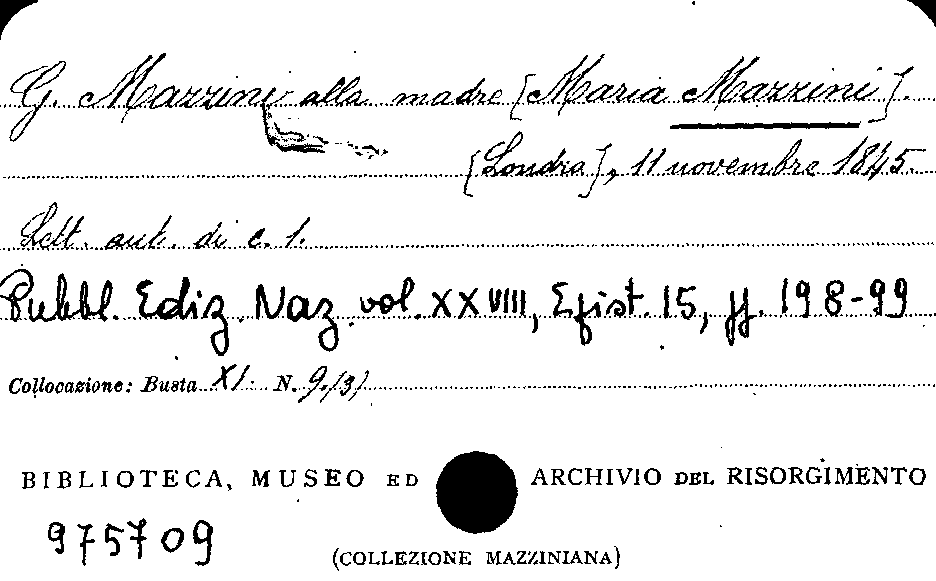 G. Mazzini alla madre [Maria Mazzini].
[Londra], 11 novembre 1845.
Lett. aut. di c. 1.
Pubbl. Ediz. Naz. vol. XXVIII, Epist. 15, pp. 198-99
Collocazione: Busta XI. N. 9/3/
BIBLIOTECA, MUSEO ED ARCHIVIO DEL RISORGIMENTO
975709
(COLLEZIONE MAZZINIANA)